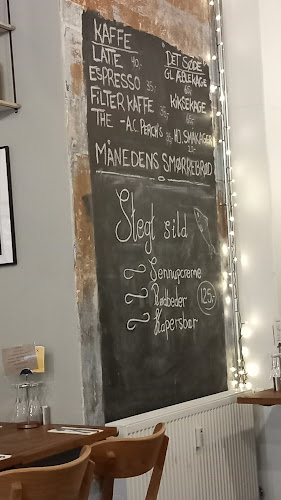 KAFFE
LATTE 40,-
ESPRESSO 35,-
FILTER KAFFE 35,-
THE - A.C. PERCH'S
"DET SØDE"
GL. ÆBLEKAGE
65,-
KIKSEKAGE
SMÅKAGER
25,-
MÅNEDENS SMØRREBRØD
Stegt sild
Sennupcreme
Rødbeder
Kapersbær
125,-